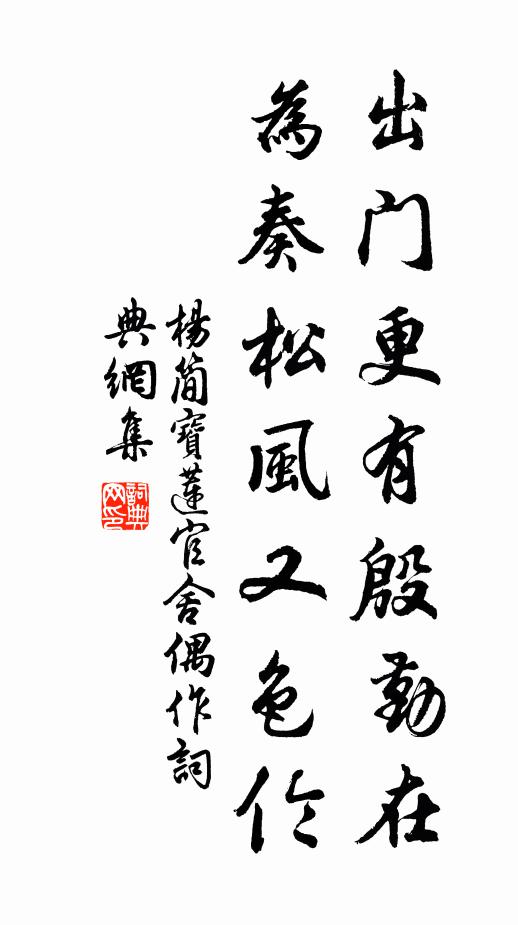 出門更有殷勤在
為奏松風又色伶
楊簡寶蓮官舍偶作詞
典網集
詞典
网印